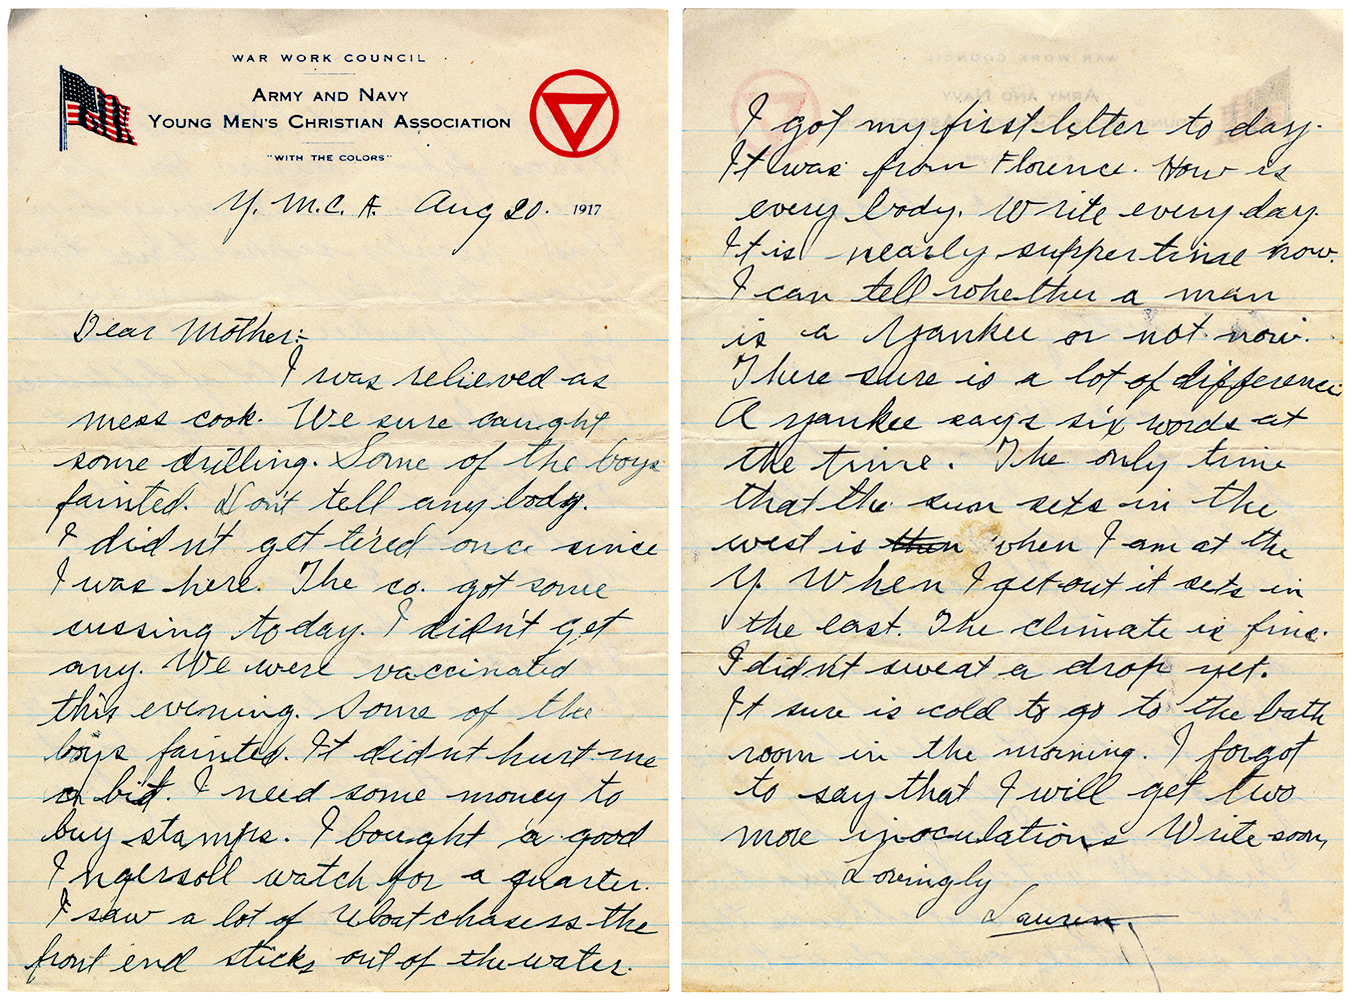 WAR WORK COUNCIL
ARMY AND NAVY
YOUNG MEN'S CHRISTIAN ASSOCIATION
"WITH THE COLORS"
Y. M. C. A. Aug 20. 1917
Dear Mother:-
I was relieved as
mess cook. We sure caught
some drilling. Some of the boys
fainted. Don't tell any body.
I didn't get tired once since
I was here. The co. got some
cussing today. I didn't get
any. We were vaccinated
this evening. Some of the
boys fainted. It didn't hurt me
a bit. I need some money to
buy stamps. I bought a good
Ingersoll watch for a quarter.
I saw a lot of Uboat chasers the
front end sticks out of the water.
I got my first letter to day.
It was from Florence. How is
every body. Write every day.
It is nearly supper time now.
I can tell whether a man
is a yankee or not now.
There sure is a lot of difference
A yankee says six words at
the time. The only time
that the sun sets in the
west is then when I am at the
Y. When I get out it sets in
the east. The climate is fine.
I didn't sweat a drop yet.
It sure is cold to go to the bath
room in the morning. I forgot
to say that I will get two
more inoculations Write soon,
Lovingly
Lauren.